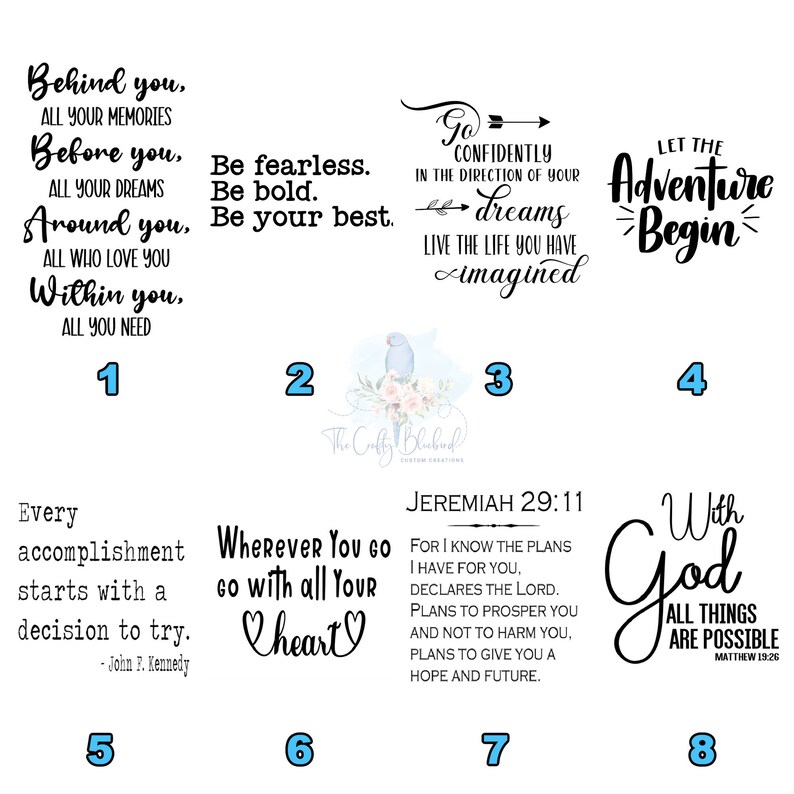 Behind you,
ALL YOUR MEMORIES
Before you,
ALL YOUR DREAMS
Around you,
ALL WHO LOVE YOU
Within you,
ALL YOU NEED
1
Be fearless.
Be bold.
Be your best.
2
Go
CONFIDENTLY
IN THE DIRECTION OF YOUR
dreams
LIVE THE LIFE YOU HAVE
imagined
3
LET THE
Adventure
Begin
4
The Crafty Bluebird
CUSTOM CREATIONS
Every
accomplishment
starts with a
decision to try.
- John F. Kennedy
5
Wherever You go
go with all Your
heart
6
JEREMIAH 29:11
FOR I KNOW THE PLANS
I HAVE FOR YOU,
DECLARES THE LORD.
PLANS TO PROSPER YOU
AND NOT TO HARM YOU,
PLANS TO GIVE YOU A
HOPE AND FUTURE.
7
With
God
ALL THINGS
ARE POSSIBLE
MATTHEW 19:26
8